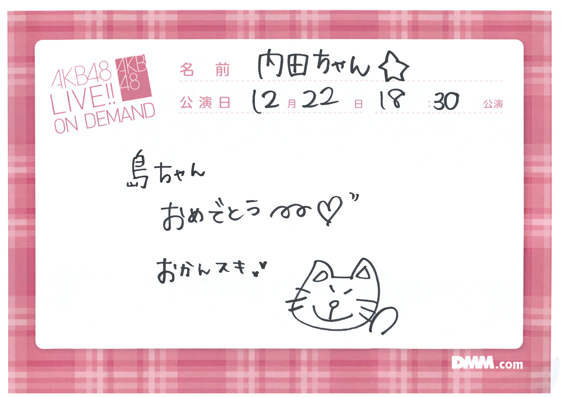 AKB48
LIVE!!
ON DEMAND
AKB
48
名前 内田ちゃん☆
公演日 12月22日 18:30公演
島ちゃん
おめでとう♡
おかんスキ
DMM.com